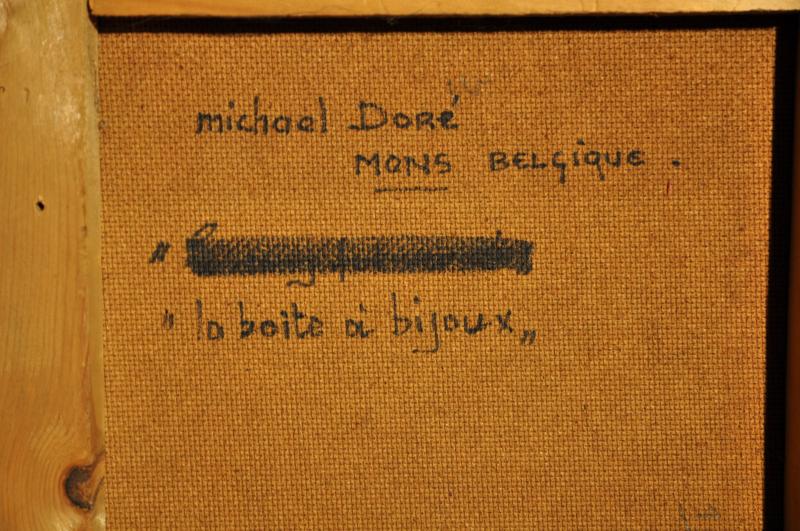 michael DORé
MONS BELGIQUE.
"la boite à bijoux„